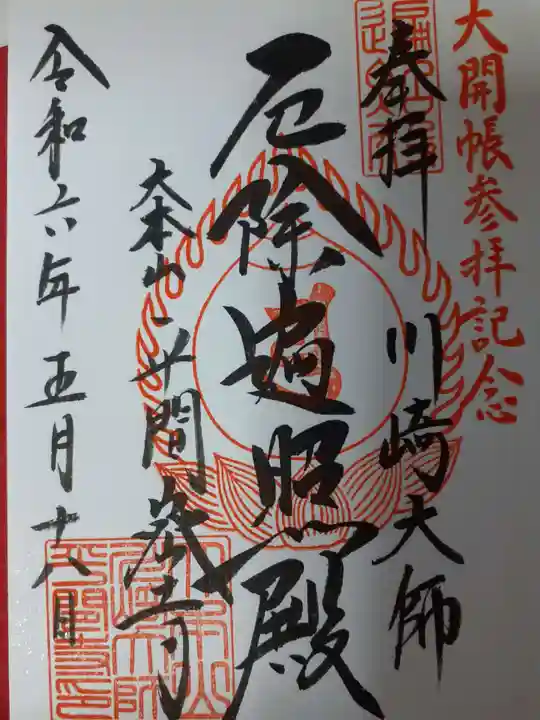 大開帳参拝記念
奉拝
川崎大師
厄除遍照殿
大本山
平間寺
令和六年五月十八日